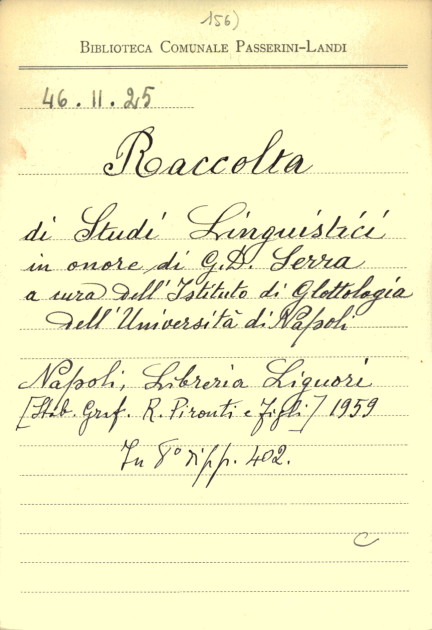 156)
BIBLIOTECA COMUNALE PASSERINI-LANDI
46.11.25
Raccolta
di Studi Linguistici
in onore di G.D. Serra
a cura dell'Istituto di Glottologia
dell'Università di Napoli
Napoli, Libreria Liguori
[Stab. Graf. R. Pironti e Figli] 1959
In 8° di pp. 402.
C